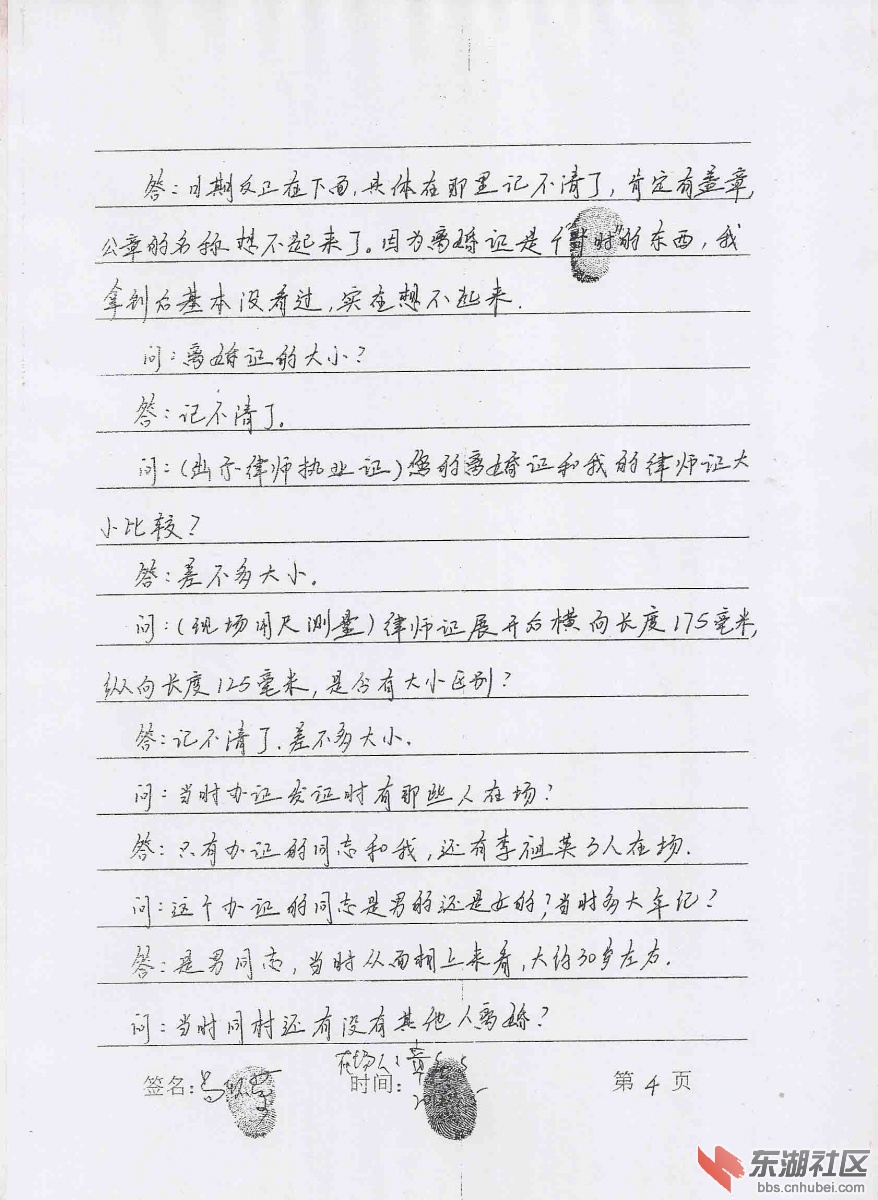 答：日期反正在下面，具体在那里记不清了，肯定有盖章，
公章的名称想不起来了。因为离婚证是个 的东西，我
拿到后基本没看过，实在想不起来．
问：离婚证的大小？
答：记不清了。
问：（出示律师执业证）您的离婚证和我的律师证大
小比较？
答：差不多大小．
问：（现场用尺测量）律师证展开后横向长度175毫米，
纵向长度125毫米，是否有大小区别？
答：记不清了．差不多大小．
问：当时办证发证时有那些人在场？
答：只有办证的同志和我，还有李祖英3人在场．
问：这个办证的同志是男的还是女的？当时多大年纪？
答：是男同志，当时从面相上来看，大约30岁左右．
问：当时同村还有没有其他人离婚？
在场人：
签名： 时间： 第 4 页
东湖社区
bbs.cnhubei.com